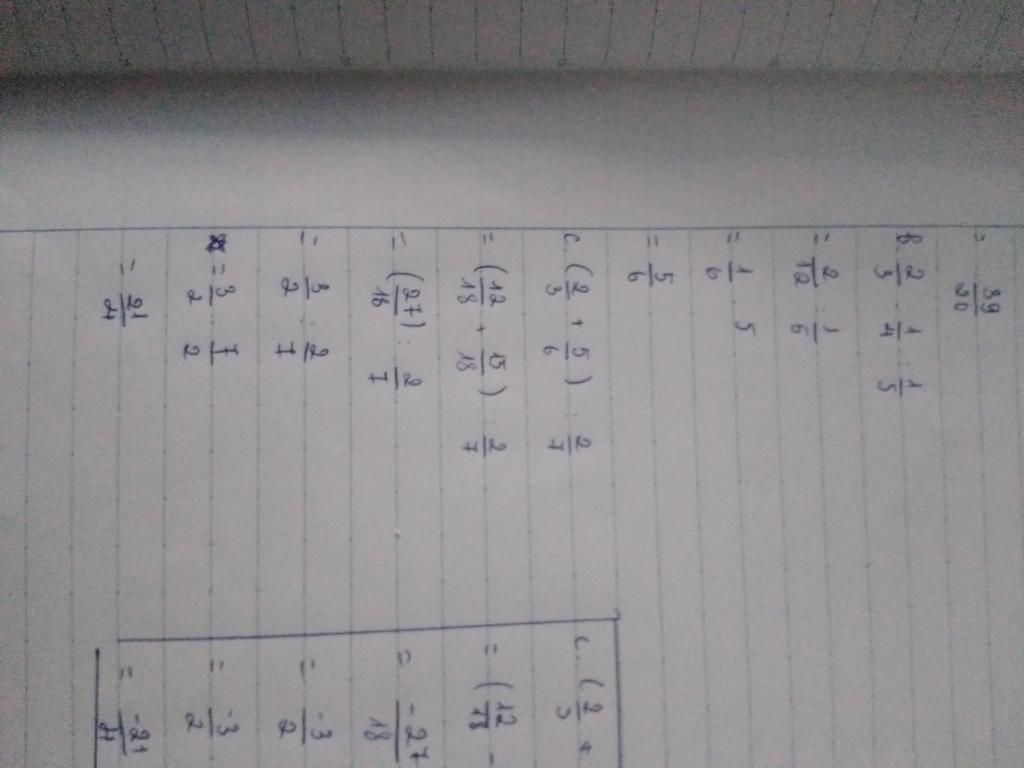 = 39/20
b 2/3 . 1/4 : 1/5
= 2/12 : 1/5
= 1/6 . 5
= 5/6
c. (2/3 + 5/6) : 2/7
= (12/18 + 15/18) : 2/7
= (27/18) : 2/7
= 3/2 : 2/7
= 3/2 . 7/2
= 21/4
c. (2/3 +
= (12/18 -
= -27/18
= -3/2
= -3/2
= -21/4